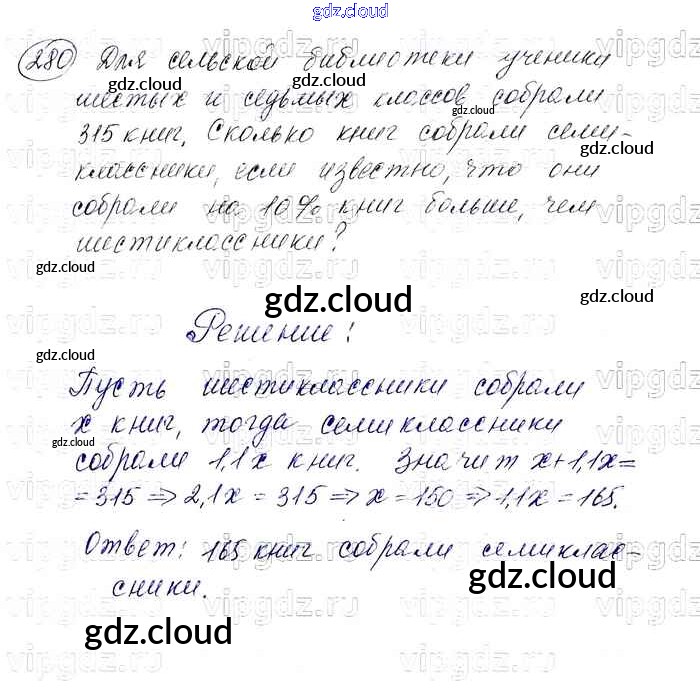 gdz.cloud
280 Для сельской библиотеки ученики
шестых и седьмых классов собрали
315 книг. Сколько книг собрали семи-
классники, если известно, что они
собрали на 10% книг больше, чем
шестиклассники?
gdz.cloud
Решение:
Пусть шестиклассники собрали
x книг, тогда семиклассники
собрали 1,1x книг. Значит x+1,1x=
=315 ⇒ 2,1x = 315 ⇒ x = 150 ⇒ 1,1x = 165.
Ответ: 165 книг собрали семиклас-
сники.
gdz.cloud
gdz.cloud
vipgdz.ru